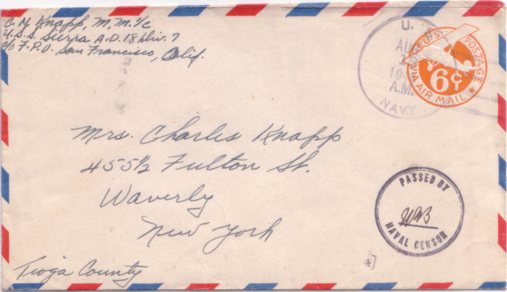 C. M. Knapp, M.M. 1/c
U.S.S. Sierra A.D. 18 Div. 7
c/o F.P.O. San Francisco, Calif.
U.
AU
194
A.M.
NAVY
U.S. POSTAGE
6¢
VIA AIR MAIL
Mrs. Charles Knapp
455½ Fulton St.
Waverly
New York
Tioga County
PASSED BY
NAVAL CENSOR